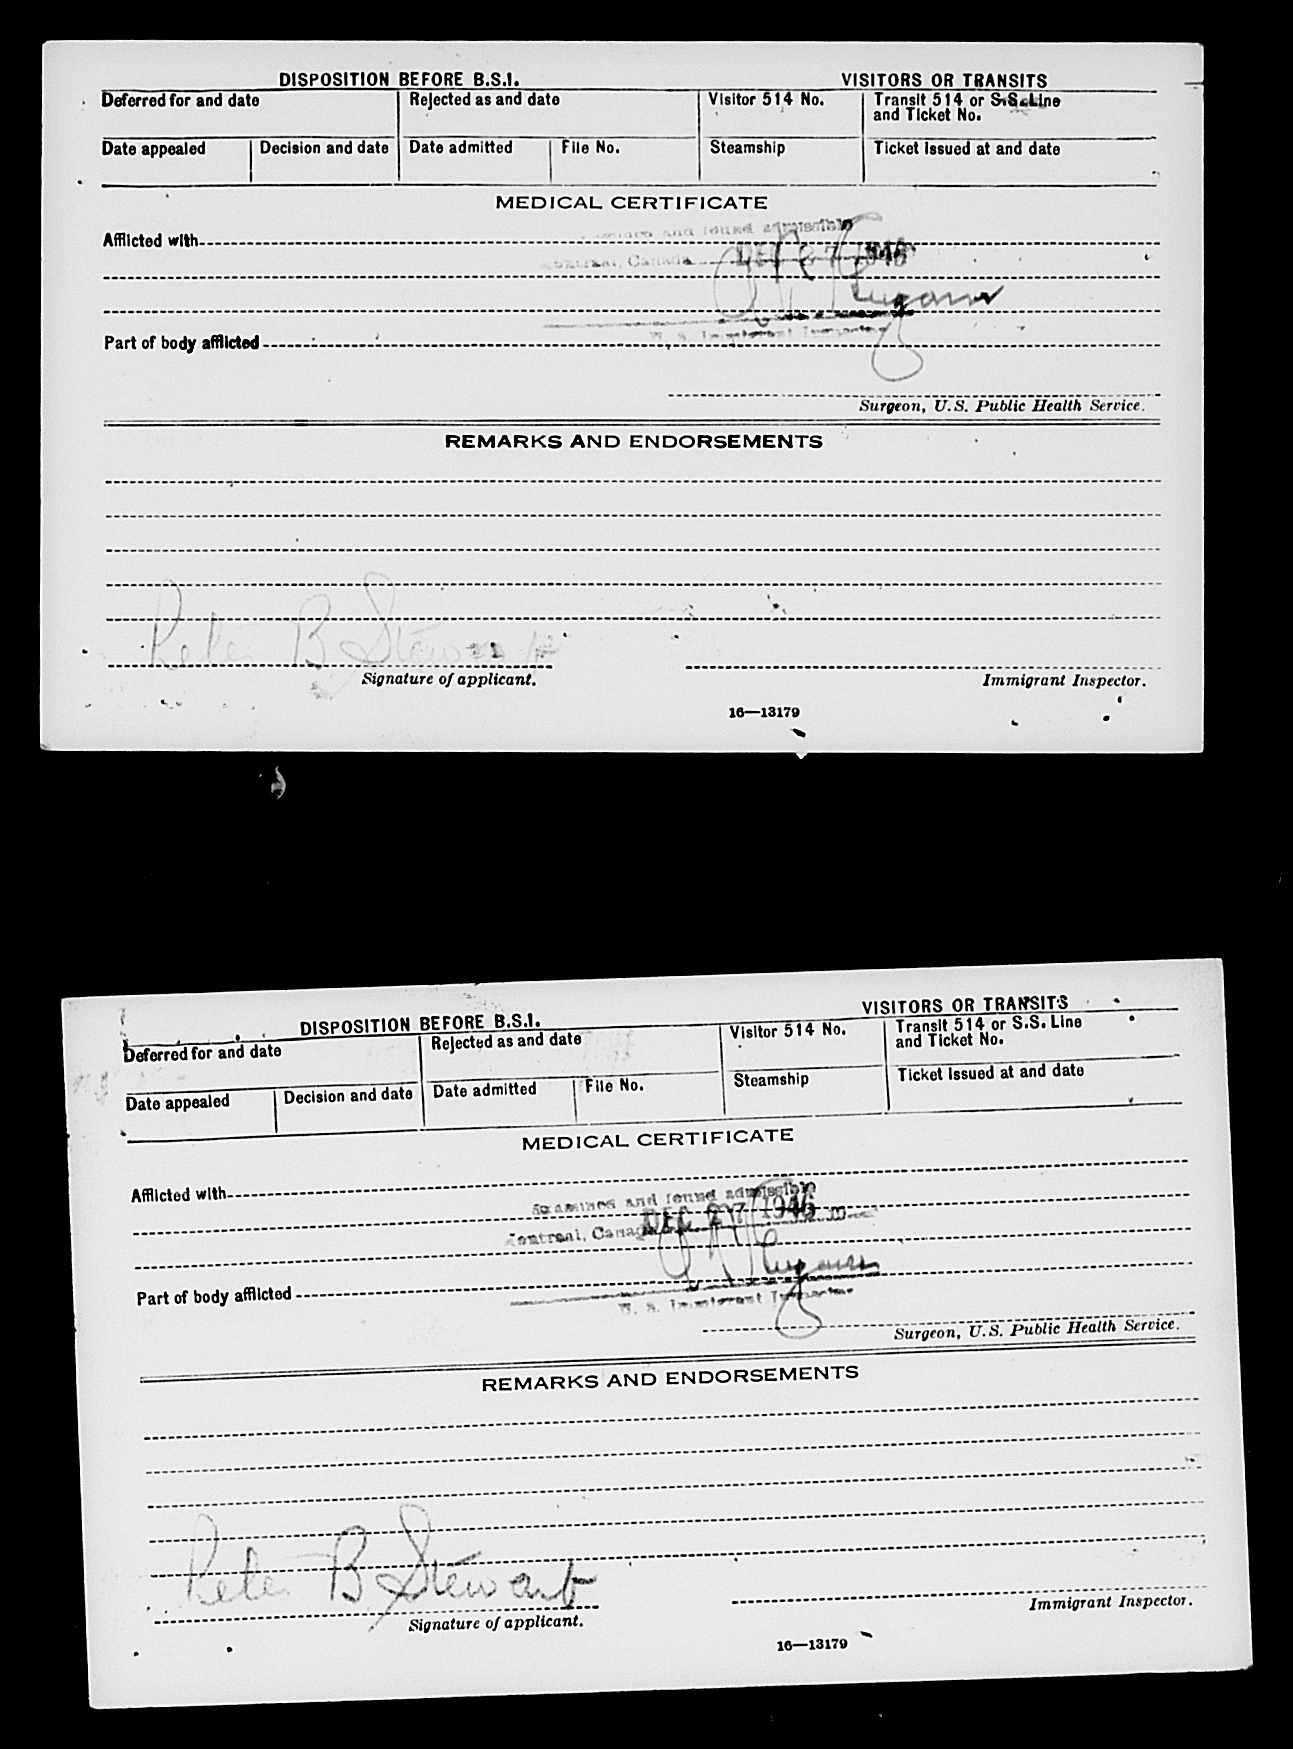 DISPOSITION BEFORE B.S.I. VISITORS OR TRANSITS
Deferred for and date Rejected as and date Visitor 514 No. Transit 514 or S.S. Line
and Ticket No.
Date appealed Decision and date Date admitted File No. Steamship Ticket issued at and date
MEDICAL CERTIFICATE
and found admissible
Afflicted with
Montreal, Canada DEC 27 1946
U. S. Immigrant Inspector
Part of body afflicted
Surgeon, U.S. Public Health Service.
REMARKS AND ENDORSEMENTS
Peter B Stewart
Signature of applicant. Immigrant Inspector.
16—13179
DISPOSITION BEFORE B.S.I. VISITORS OR TRANSITS
Deferred for and date Rejected as and date Visitor 514 No. Transit 514 or S.S. Line
and Ticket No.
Date appealed Decision and date Date admitted File No. Steamship Ticket issued at and date
MEDICAL CERTIFICATE
Afflicted with
Examined and found admissible
Montreal, Canada DEC 27 1946
Part of body afflicted
U. S. Immigrant Inspector
Surgeon, U.S. Public Health Service.
REMARKS AND ENDORSEMENTS
Peter B Stewart
Signature of applicant. Immigrant Inspector.
16—13179